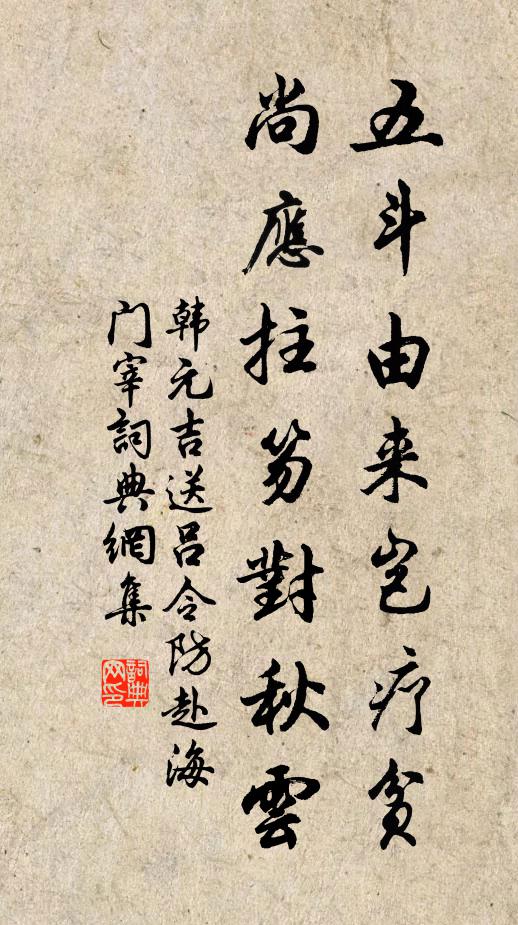 五斗由来岂疗贫
尚應拄笏對秋雲
韩元吉送吕令防赴海
门宰詞典網集
詞典网印